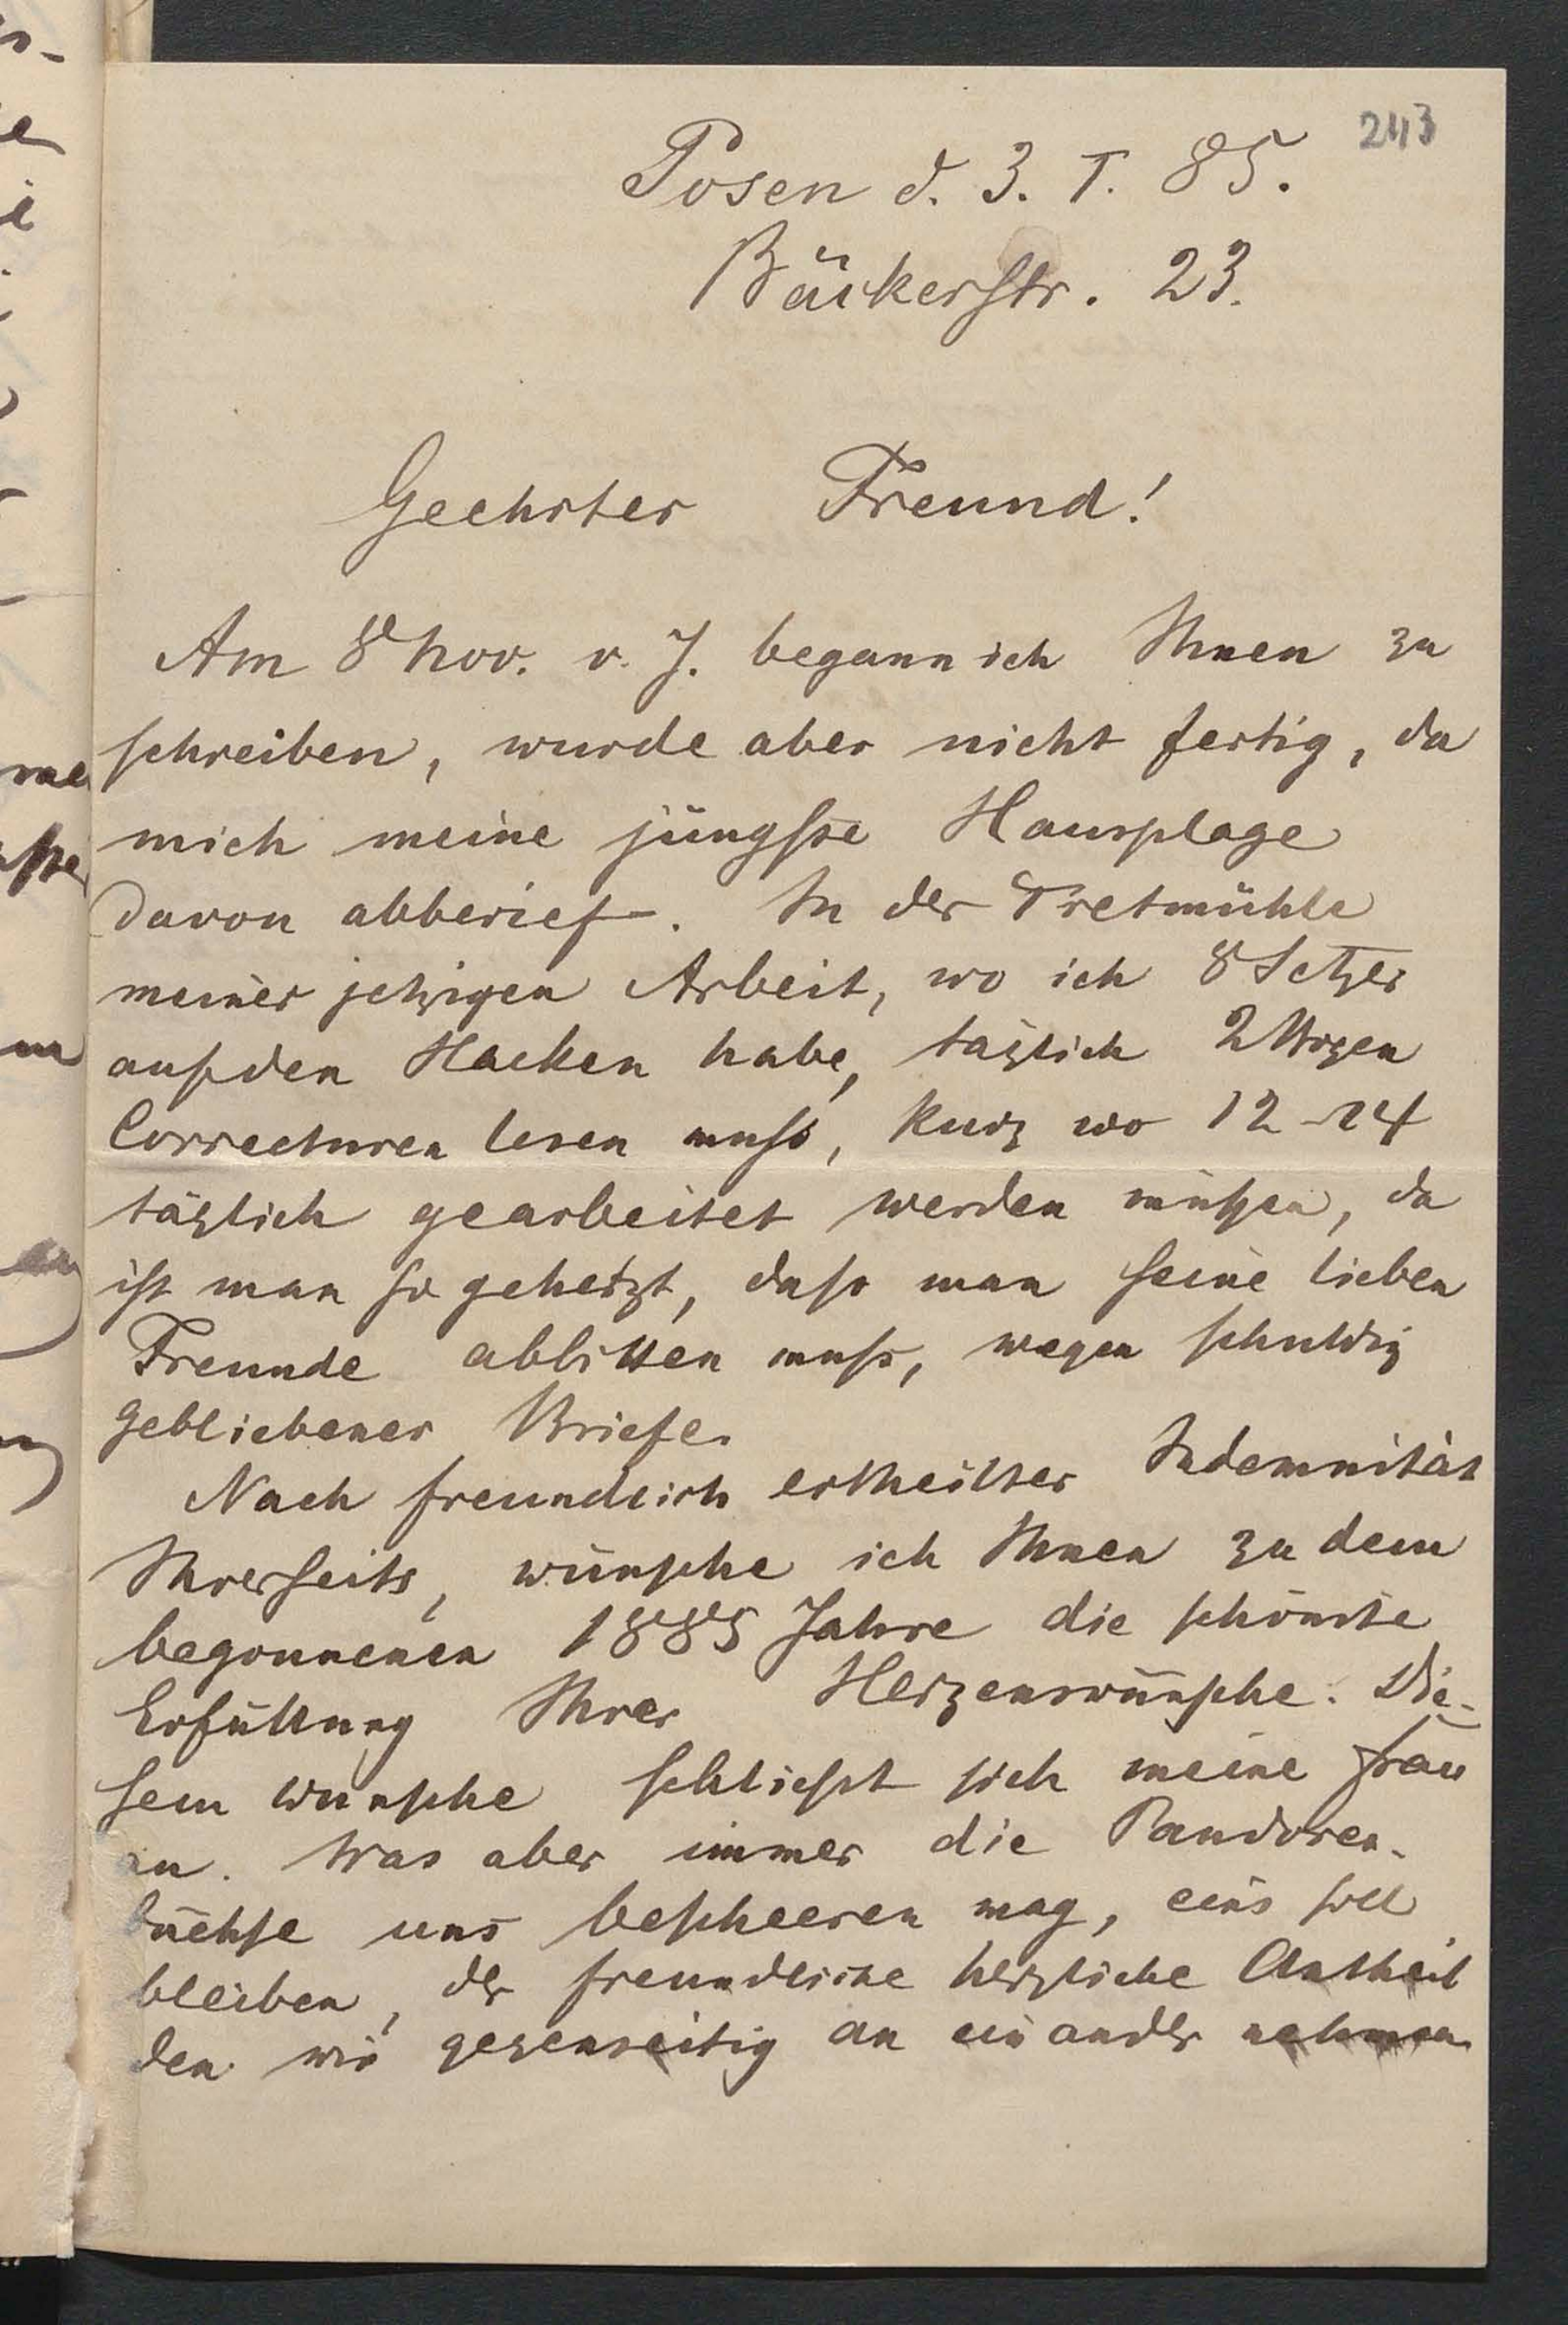 243
Posen d. 3. I. 85.
Bäckerstr. 23.
Geehrter Freund!
Am 8 Nov. v. J. begann ich Ihnen zu
schreiben, wurde aber nicht fertig, da
mich meine jüngste Hausplage
davon abberief. In der Tretmühle
meiner jetzigen Arbeit, wo ich 8 Setzer
auf den Hacken habe, täglich 2 Bogen
Correcturen lesen muss, kurz wo 12-14
täglich gearbeitet werden müssen, da
ist man so gehetzt, dass man seine lieben
Freunde abbitten muss, wegen schuldig
gebliebener Briefe.
Nach freundlich ertheilter Indemnität
Ihrerseits, wünsche ich Ihnen zu dem
begonnenen 1885 Jahre die schönste
Erfüllung Ihrer Herzenswünsche. Die-
sem Wunsche schliesst sich meine Frau
an. Was aber immer die Pandoren-
büchse uns bescheeren mag, eins soll
bleiben, der freundliche herzliche Antheil
den wir gegenseitig an einander nehmen